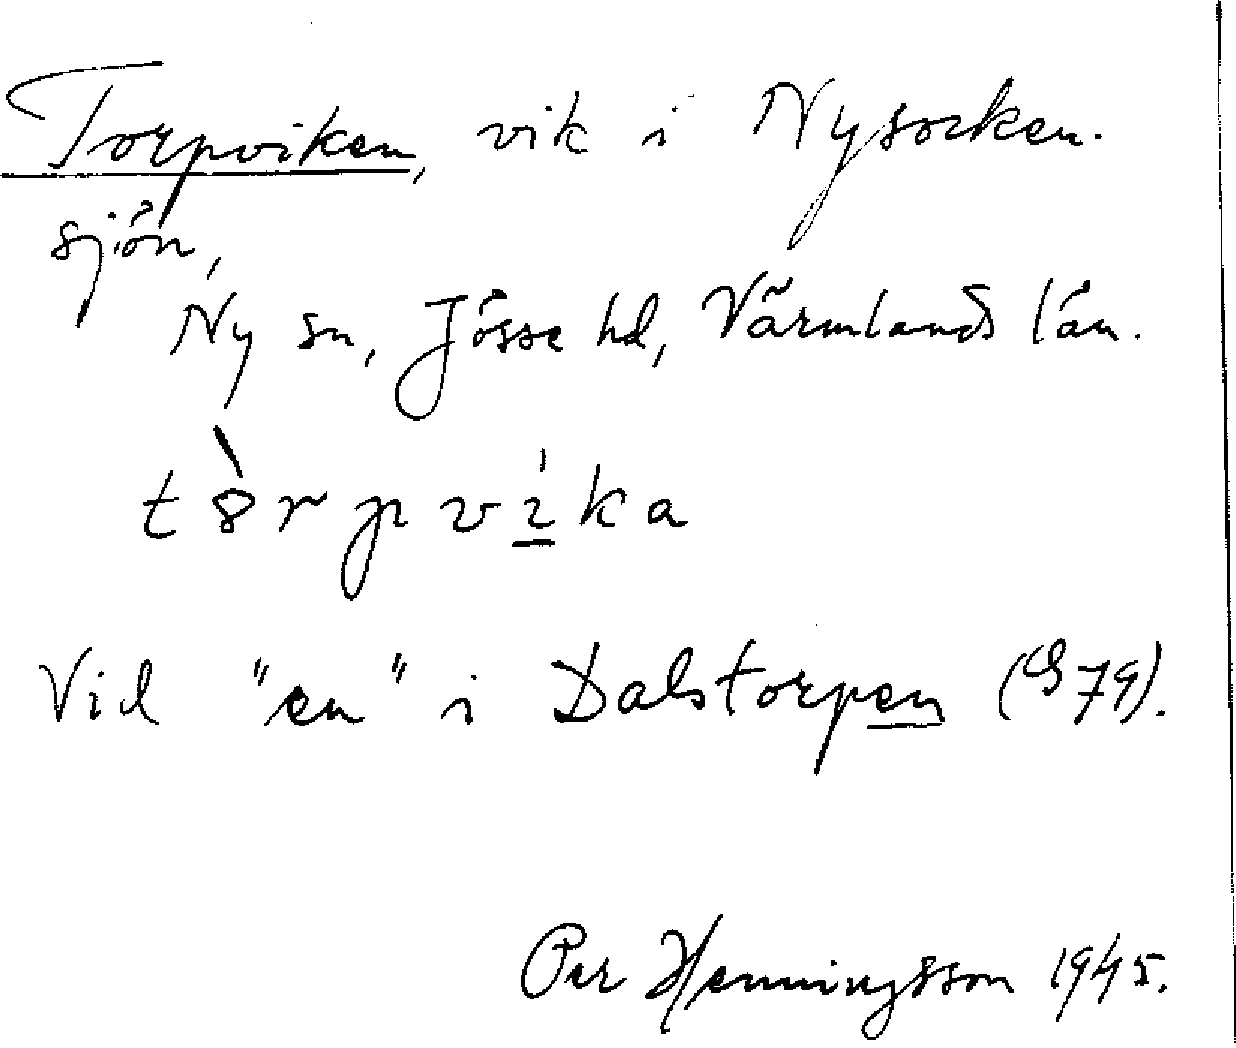 Torpviken, vik i Nysocken-
sjön,
Ny sn, Jösse hd, Värmlands län.
Vid "en" i Dalstorpen (G79).
Per Henningsson 1945.